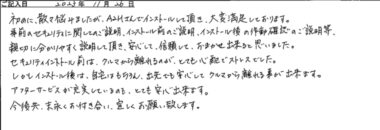 ご記入日 2023年 11月 26日
初めに、散々悩みましたが、A2Mさんでインストールして頂き、大変満足しております。
事前のセキュリティに関してのご説明、インストール前のご説明、インストール後の作動確認のご説明等、
親切に分かりやすく説明して頂き、安心して、信頼して、おまかせ出来ると思いました。
セキュリティインストール前は、クルマから離れるのが、とても心配でストレスでした。
しかしインストール後は、自宅はもちろん、出先でも安心してクルマから離れる事が出来ます。
アフターサービスが充実しているのも、とても安心出来ます。
今後共、末永くお付き合い、宜しくお願い致します。